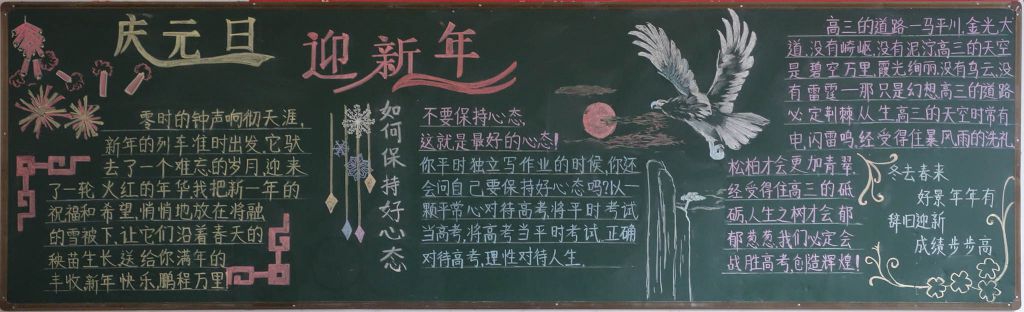 庆元旦
迎新年
零时的钟声响彻天涯,
新年的列车准时出发,它驮
去了一个难忘的岁月,迎来
了一轮火红的年华我把新一年的
祝福和希望,悄悄地放在将融
的雪被下,让它们沿着春天的
秧苗生长,送给你满年的
丰收,新年快乐,鹏程万里!
如何保持好心态
不要保持心态,
这就是最好的心态!
你平时独立写作业的时候,你还
会问自己,要保持好心态吗?以一
颗平常心对待高考,将平时考试
当高考,将高考当平时考试.正确
对待高考,理性对待人生.
高三的道路一马平川,金光大
道,没有崎岖,没有泥泞高三的天空
是碧空万里,霞光绚丽,没有乌云,没
有雷霆一那只是幻想高三的道路
必定荆棘从生高三的天空时常有
电,闪雷鸣,经受得住暴风雨的洗礼,
松柏才会更加青翠.
经受得住高三的砥
砺,人生之树才会郁
郁葱葱.我们必定会
战胜高考,创造辉煌!
冬去春来
好景年年有
辞旧迎新
成绩步步高